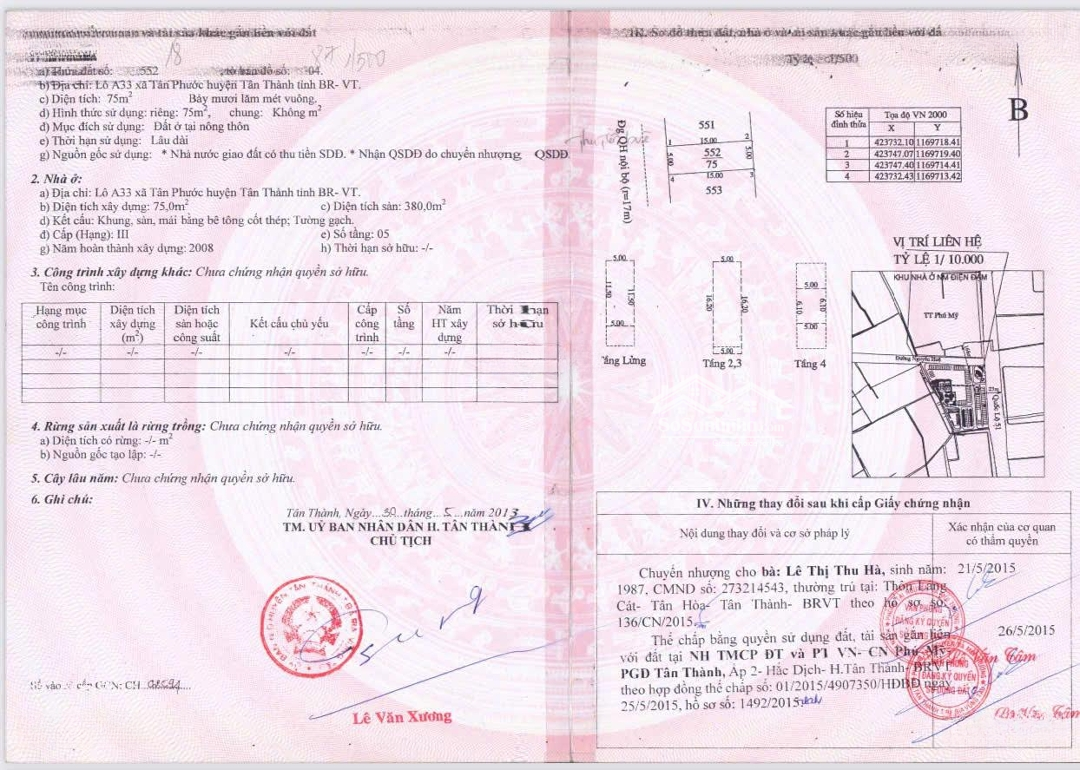 18
87 /500
a) Thửa đất số: 552 , tờ bản đồ số: 04.
b) Địa chỉ: Lô A33 xã Tân Phước huyện Tân Thành tỉnh BR- VT.
c) Diện tích: 75m² Bảy mươi lăm mét vuông.
d) Hình thức sử dụng: riêng: 75m², chung: Không m²
đ) Mục đích sử dụng: Đất ở tại nông thôn
e) Thời hạn sử dụng: Lâu dài
g) Nguồn gốc sử dụng: * Nhà nước giao đất có thu tiền SDĐ. * Nhận QSDĐ do chuyển nhượng, QSDĐ
2. Nhà ở:
a) Địa chỉ: Lô A33 xã Tân Phước huyện Tân Thành tỉnh BR- VT.
b) Diện tích xây dựng: 75,0m² c) Diện tích sàn: 380,0m²
d) Kết cấu: Khung, sàn, mái bằng bê tông cốt thép; Tường gạch.
đ) Cấp (Hạng): III e) Số tầng: 05
g) Năm hoàn thành xây dựng: 2008 h) Thời hạn sở hữu: -/-
3. Công trình xây dựng khác: Chưa chứng nhận quyền sở hữu.
Tên công trình:
Hạng mục công trình Diện tích xây dựng (m²) Diện tích sàn hoặc công suất Kết cấu chủ yếu Cấp công trình Số tầng Năm HT xây dựng Thời hạn sở hữu
-/- -/- -/- -/- -/- -/- -/-
4. Rừng sản xuất là rừng trồng: Chưa chứng nhận quyền sở hữu.
a) Diện tích có rừng: -/- m²
b) Nguồn gốc tạo lập: -/-
5. Cây lâu năm: Chưa chứng nhận quyền sở hữu.
6. Ghi chú:
Tân Thành, Ngày...30...tháng...5...năm 2013
TM. UỶ BAN NHÂN DÂN H. TÂN THÀNH
CHỦ TỊCH
Số vào sổ cấp GCN: CH
Lê Văn Xương
III. Sơ đồ thửa đất, nhà ở và tài sản khác gắn liền với đất
Tỷ lệ 1/500
B
Đg QH nội bộ (r=17m)
551
1 15.00 2
5.00 552 5.00
75
4 15.00 3
553
Số hiệu đỉnh thửa Tọa độ VN 2000
X Y
1 423732.10 1169718.41
2 423747.07 1169719.40
3 423747.40 1169714.41
4 423732.43 1169713.42
5.00
11.50 11.50
5.00
Tầng Lửng
5.00
16.20 16.20
5.00
Tầng 2,3
5.00
6.10 6.10
5.00
Tầng 4
VỊ TRÍ LIÊN HỆ
TỶ LỆ 1/ 10.000
KHU NHÀ Ở NM ĐIỆN ĐẠM
TT Phú Mỹ
Đường Nguyễn Huệ
Quốc Lộ 51
IV. Những thay đổi sau khi cấp Giấy chứng nhận
Nội dung thay đổi và cơ sở pháp lý
Xác nhận của cơ quan có thẩm quyền
Chuyển nhượng cho bà: Lê Thị Thu Hà, sinh năm:
1987, CMND số: 273214543, thường trú tại: Thôn Láng
Cát- Tân Hòa- Tân Thành- BRVT theo hồ sơ số:
136/CN/2015
21/5/2015
Thế chấp bằng quyền sử dụng đất, tài sản gắn liền
với đất tại NH TMCP ĐT và PT VN- CN Phú Mỹ-
PGD Tân Thành, Ấp 2- Hắc Dịch- H.Tân Thành- BRVT
theo hợp đồng thế chấp số: 01/2015/4907350/HĐBĐ ngày
25/5/2015, hồ sơ số: 1492/2015
26/5/2015
VĂN PHÒNG
ĐĂNG KÝ QUYỀN
VĂN PHÒNG
ĐĂNG KÝ QUYỀN
SỬ DỤNG ĐẤT